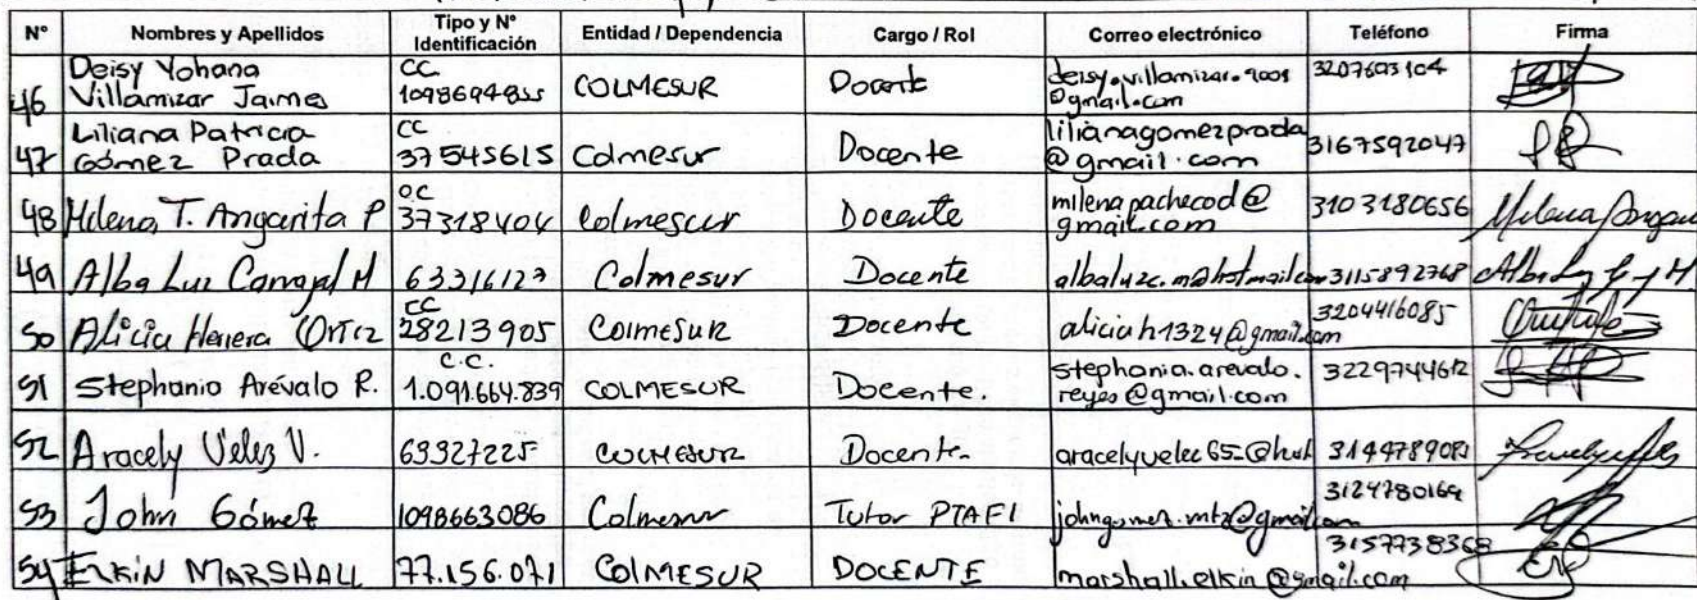 N° Nombres y Apellidos Tipo y N° Identificación Entidad / Dependencia Cargo / Rol Correo electrónico Teléfono Firma
46 Deisy Yohana Villamizar Jaimes CC 1098694855 COLMESUR Docente deisy.villamizar.9001@gmail.com 3207603104
47 Liliana Patricia Gómez Prada CC 37545615 Colmesur Docente lilianagomezprada@gmail.com 3167592047
48 Milena T. Angarita P CC 37318404 Colmesur Docente milenapachecod@gmail.com 3103180656 Milena Angari
49 Alba Luz Carvajal M 63316127 Colmesur Docente albaluzc.m@hotmail.com 3115892768
50 Alicia Herrera Ortiz CC 28213905 COlmeSUR Docente aliciah1324@gmail.com 3204416085
51 Stephania Arévalo R. C.C. 1.091.664.839 COLMESUR Docente. stephania.arevalo.reyes@gmail.com 3229744612
52 Aracely Vélez V. 63327225 COLMESUR Docente 3144789081
53 John Gómez 1098663086 Colmesur Tutor PTAFI johngomez.mtz@gmail.com 3124780169
54 ElKiN MARSHALL 77.156.071 COlMESUR DOCENTE marshall.elkin@gmail.com 3157738368